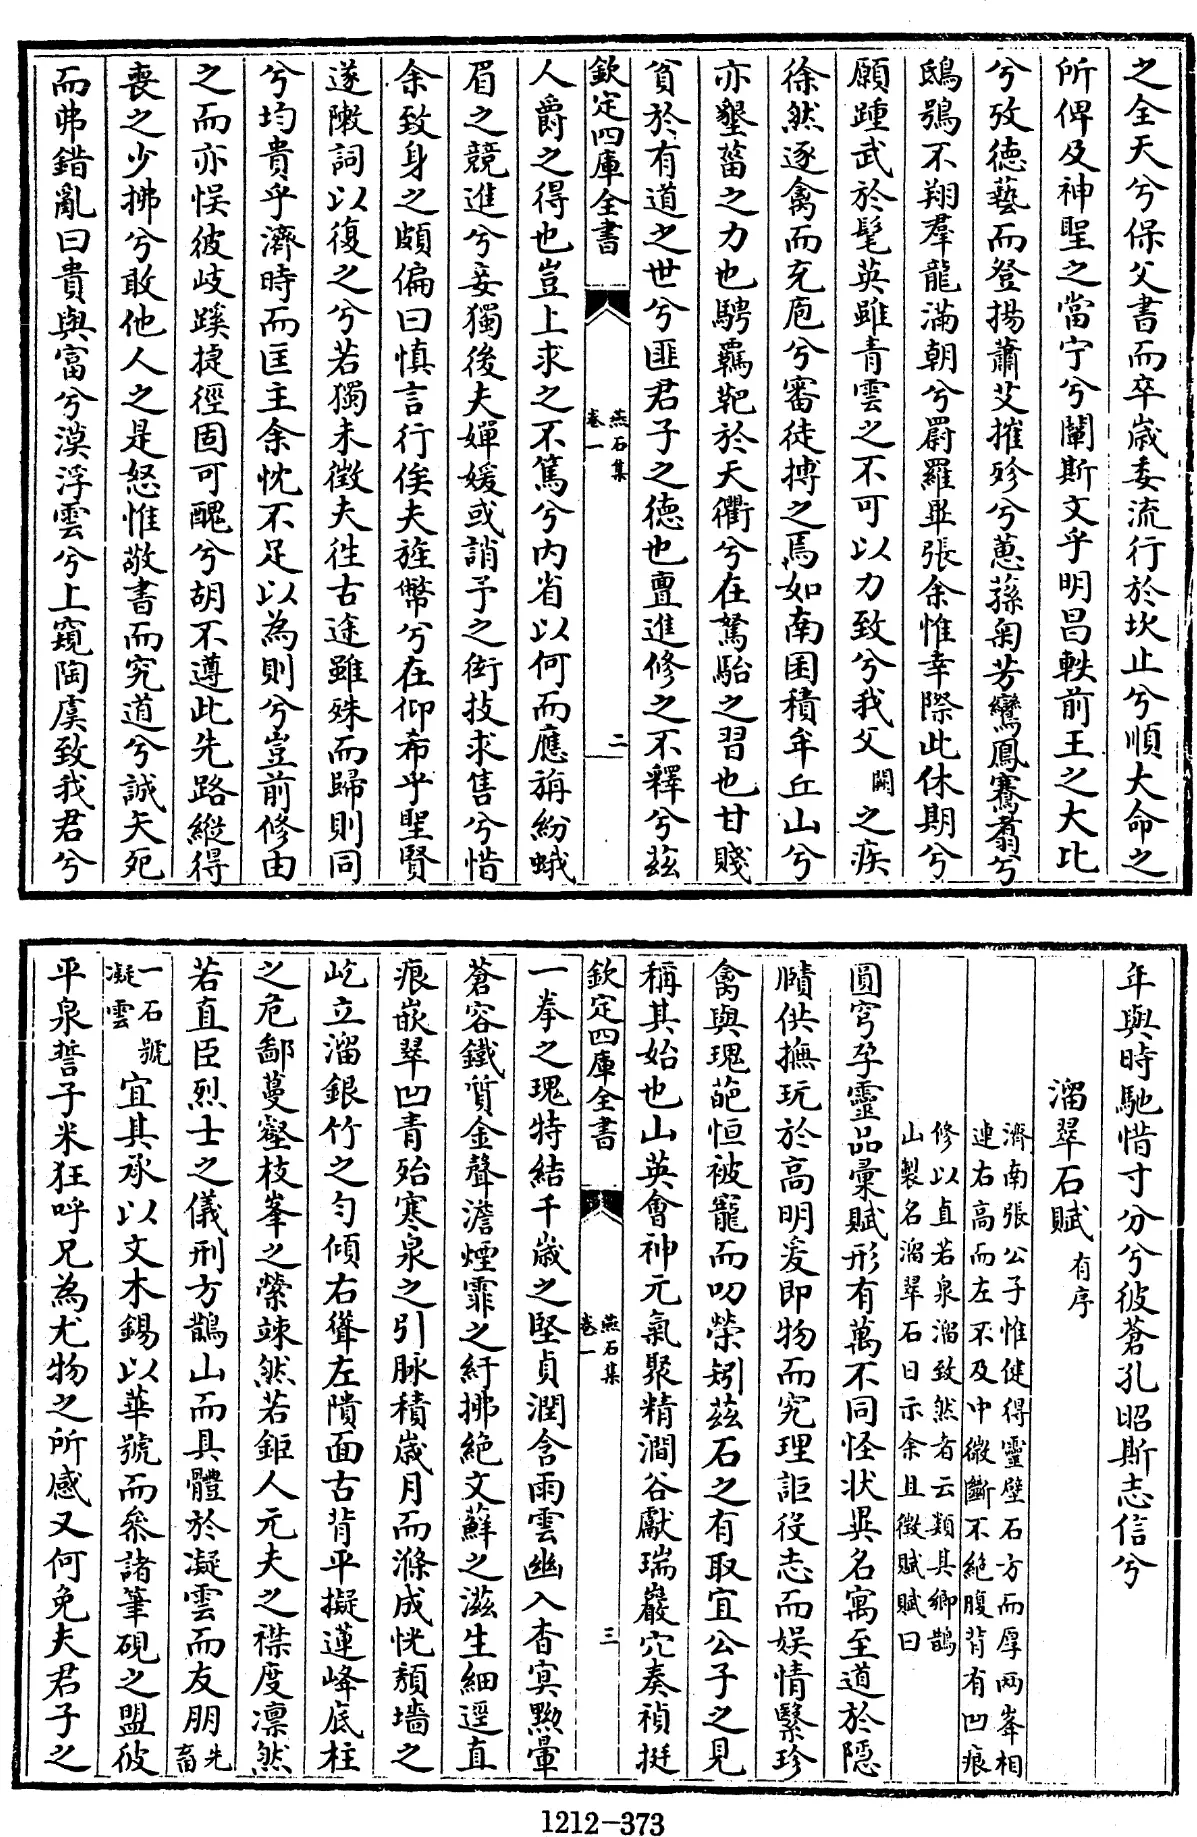 之全天兮保父書而卒歲委流行於坎止兮順大命之
所俾及神聖之當宁兮闡斯文乎明昌軼前王之大比
兮攷德藝而登揚蕭艾摧殄兮蕙蓀菊芳鸞鳳騫翥兮
鴟鴞不翔羣龍滿朝兮罻羅畢張余惟幸際此休期兮
願踵武於髦英雖青雲之不可以力致兮我父闕之疾
徐然逐禽而充庖兮審徒搏之焉如南囷積牟丘山兮
亦墾菑之力也騁覊靶於天衢兮在駑駘之習也甘賤
貧於有道之世兮匪君子之德也亶進修之不釋兮茲
欽定四庫全書
燕石集
卷一
二
人爵之得也豈上求之不篤兮内省以何而應旃紛蛾
眉之競進兮妾獨後夫嬋媛或誚予之衒技求售兮惜
余致身之頗偏曰慎言行俟夫旌幣兮在仰希乎聖賢
遂陳詞以復之兮若獨未徵夫徃古途雖殊而歸則同
兮均貴乎濟時而匡主余忱不足以為則兮豈前修由
之而亦悞彼岐蹊捷徑固可醜兮胡不遵此先路縱得
喪之少拂兮敢他人之是怒惟敬書而究道兮誠矢死
而弗錯亂曰貴與富兮漠浮雲兮上窺陶虞致我君兮
年與時馳惜寸分兮彼蒼孔昭斯志信兮
溜翠石賦有序
濟南張公子惟健得靈壁石方而厚兩峯相
連右高而左不及中微斷不絶腹背有凹痕
修以直若泉溜致然者云類其鄉鵲
山製名溜翠石日示余且徵賦賦曰
圓穹孕靈品彚賦形有萬不同怪状異名寓至道於隱
賾供撫玩於高明爰即物而究理詎役志而娱情繄珍
禽與瑰葩恒被寵而叨榮矧茲石之有取宜公子之見
稱其始也山英會神元氣聚精澗谷獻瑞巖穴奏禎挺
欽定四庫全書
燕石集
卷一
三
一拳之瑰特結千歲之堅貞潤含雨雲幽入杳冥黝暈
蒼容鐵質金聲澹煙霏之紆拂絶文蘚之滋生細逕直
痕嵌翠凹青殆寒泉之引脉積歲月而滌成恍頽墻之
屹立溜銀竹之勻傾右聳左隤面古背平擬蓮峰底柱
之危鄙蔓壑枝峯之縈竦然若鉅人元夫之襟度凛然
若直臣烈士之儀刑方鵲山而具體於凝雲而友朋先畜
一石號凝雲宜其承以文木錫以華號而叅諸筆硯之盟彼
平泉誓子米狂呼兄為尤物之所感又何免夫君子之
1212-373